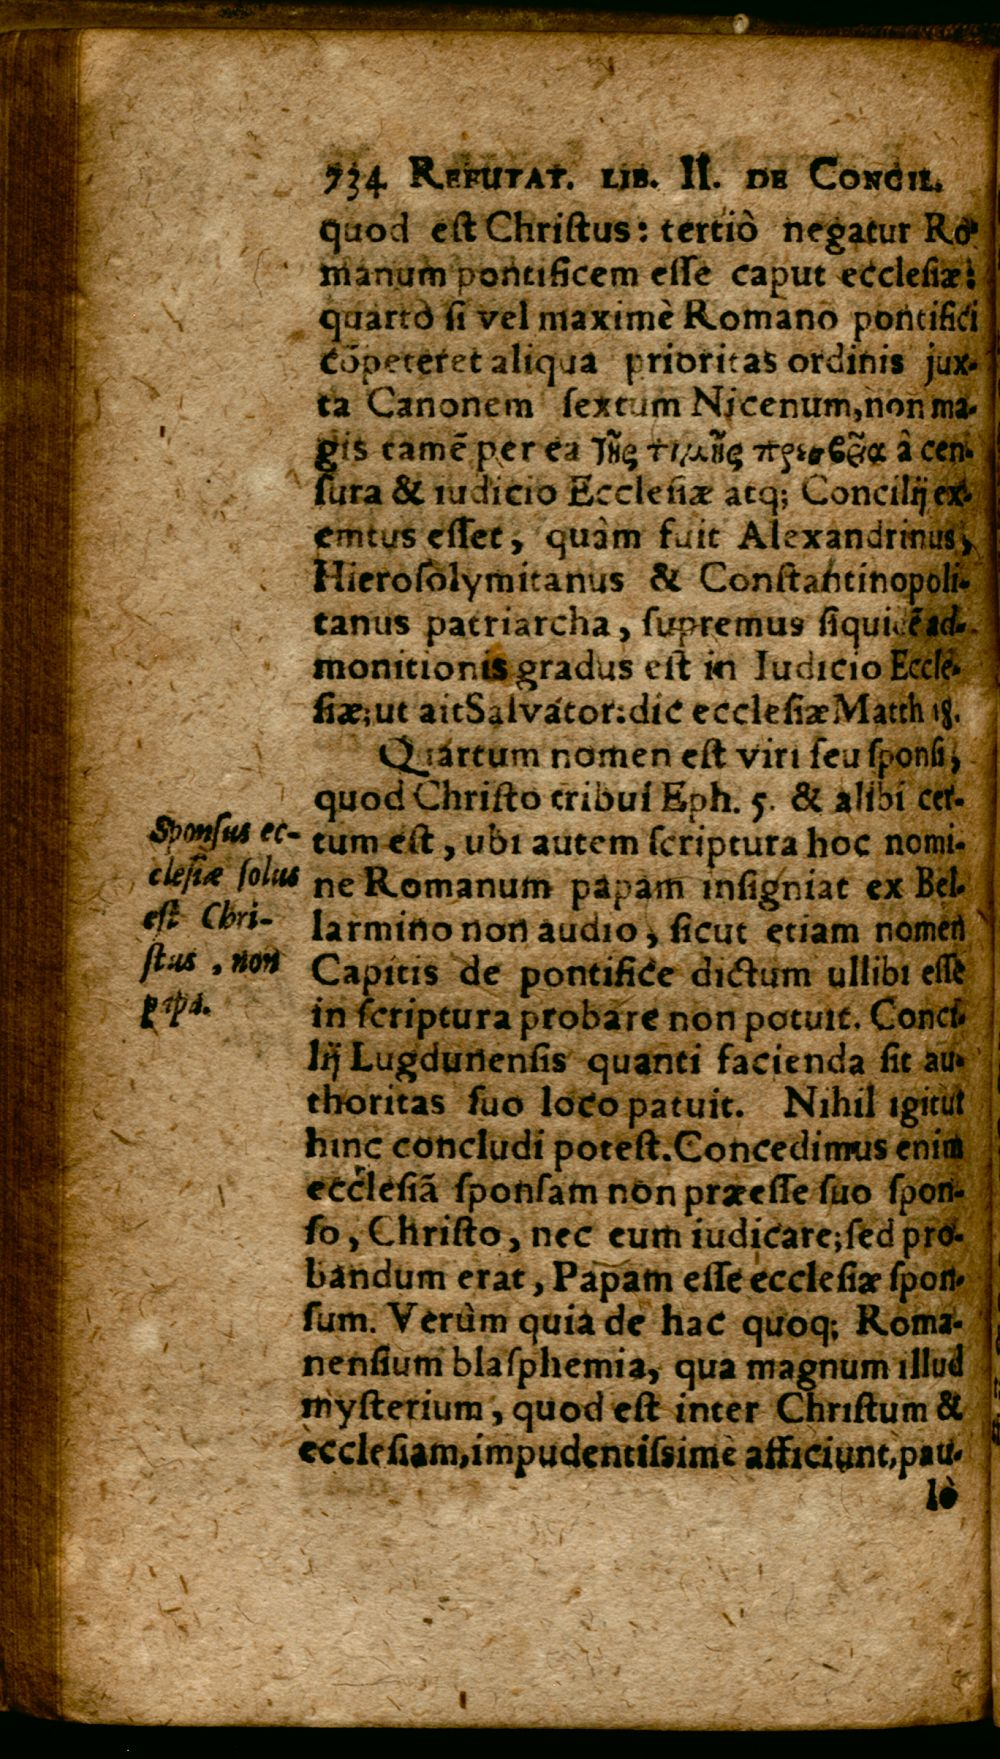 734 REFUTAT. LIB. II. DE CONCIL.
quod eſt Chriſtus: tertiò negatur Ro-
manum pontificem eſſe caput eccleſiæ:
quartò ſi vel maximè Romano pontifici
cōpeteret aliqua prioritas ordinis jux-
ta Canonem ſextum Nicenum, non ma-
gis tamē per ea τῆς τιμῆς πρεσβεῖα à cen-
ſura & iudicio Eccleſiæ atq; Concilij ex-
emtus eſſet, quàm fuit Alexandrinus,
Hieroſolymitanus & Conſtantinopoli-
tanus patriarcha, ſupremus ſiquidē ad-
monitionis gradus eſt in Iudicio Eccle-
ſiæ; ut ait Salvator: dic eccleſiæ Matth 18.
Quartum nomen eſt viri ſeu ſponſi,
quod Chriſto tribui Eph. 5. & alibi cer-
tum eſt, ubi autem ſcriptura hoc nomi-
ne Romanum papam inſigniat ex Bel-
larmino non audio, ſicut etiam nomen
Capitis de pontifice dictum ullibi eſſe
in ſcriptura probare non potuit. Conci-
lij Lugdunenſis quanti facienda ſit au-
thoritas ſuo loco patuit. Nihil igitur
hinc concludi poteſt. Concedimus enim
eccleſiā ſponſam non præeſſe ſuo ſpon-
ſo, Chriſto, nec eum iudicare; ſed pro-
bandum erat, Papam eſſe eccleſiæ ſpon-
ſum. Verùm quia de hac quoq; Roma-
nenſium blaſphemia, qua magnum illud
myſterium, quod eſt inter Chriſtum &
eccleſiam, impudentiſsimè afficiunt, pau-
lò
Sponſus ec-
cleſiæ ſolus
eſt Chri-
ſtus, non
papa.